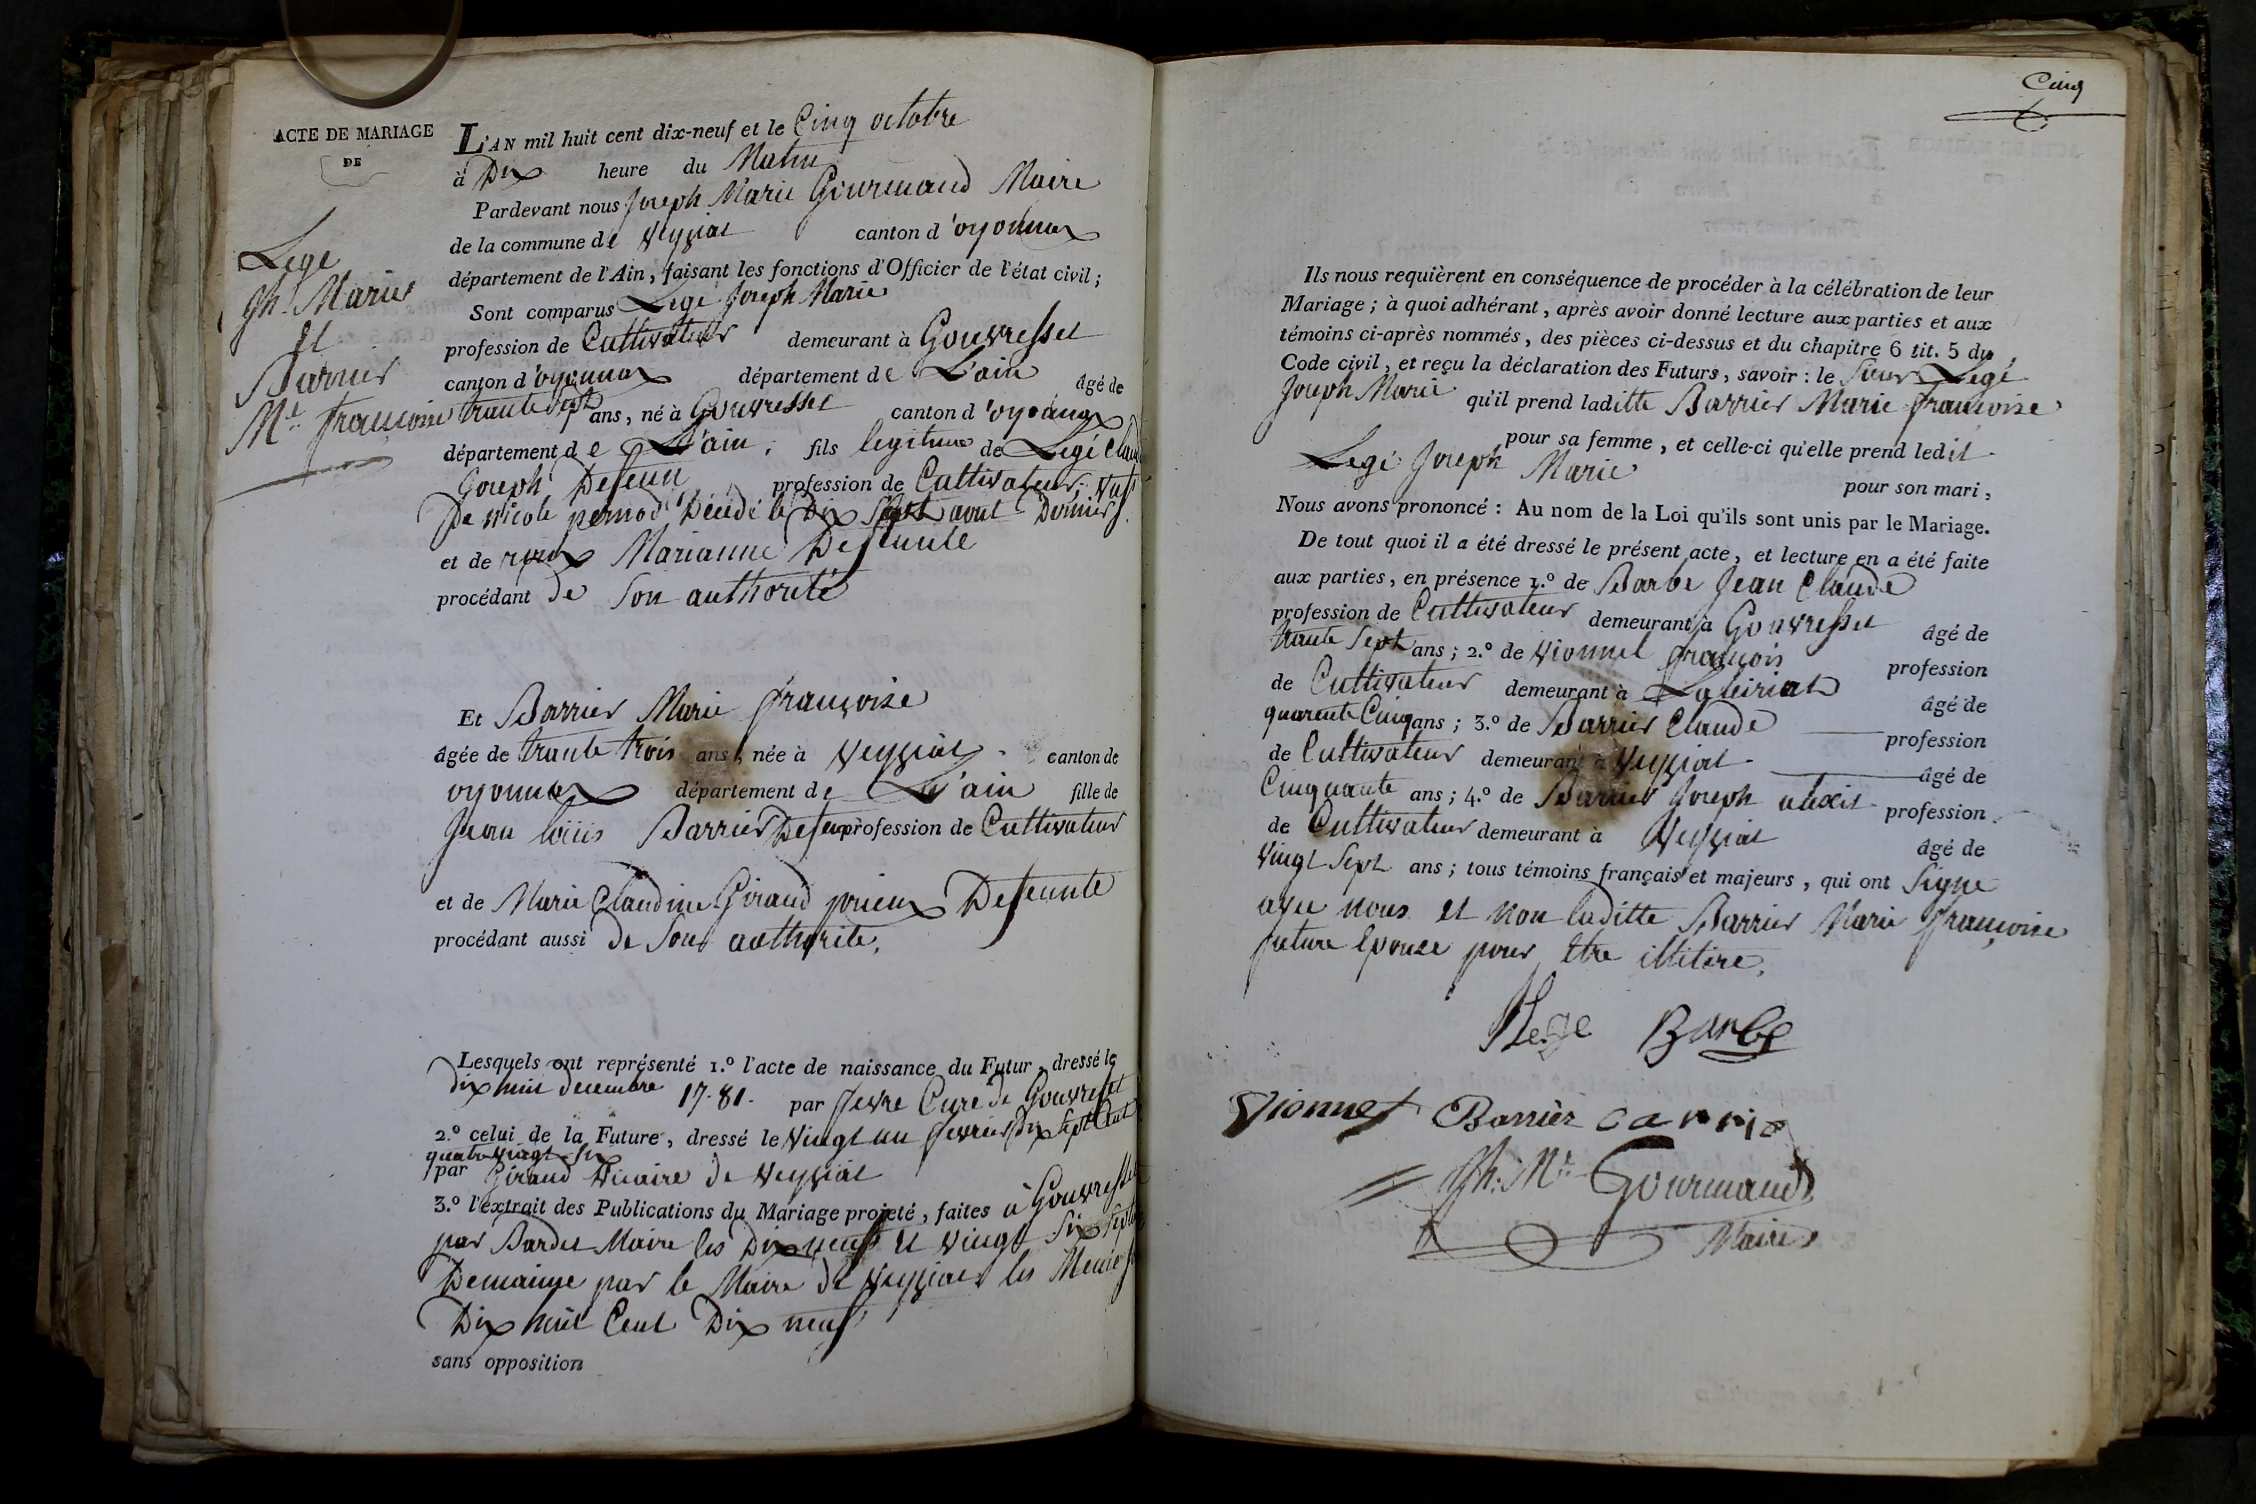 ACTE DE MARIAGE
DE
Lege
Jh. Marie
et
Barrier
Me. françoise
L'AN mil huit cent dix-neuf et le Cinq octobre
à Dix heure du Matin
Pardevant nous Joseph Marie Gourmand Maire
de la commune de Veyziat canton d'oyonnax
département de l'Ain, faisant les fonctions d'Officier de l'état civil;
Sont comparus Legé Joseph Marie
profession de Cultivateur demeurant à Gouvresset
canton d'oyonnax département de L'ain âgé de
trante sept ans, né à Gouvresset canton d'oyonnax
département de L'ain, fils legitime de Legé Claude
Joseph Defeun profession de Cultivateur, Vuf
De Nicole pernod Décédé le Dix Sept aout Dernier
et de roux Marianne Defeunte
procédant de Son authorité
Et Barrier Marie françoise
âgée de trante trois ans, née à Veyziat canton de
oyonnax département de L'ain fille de
Jean loüis Barrier Defeun profession de Cultivateur
et de Marie Claudine Giraud prieux Defeunte
procédant aussi de Son authorite,
Lesquels ont représenté 1.º l'acte de naissance du Futur, dressé le
dix huit decembre 17.81. par fevre Curé de Gouvresset
2.º celui de la Future, dressé le Vingt un fevrier Dix Sept Cent
quatre vingt Six
par Giraud Vicaire de Veyziat
3.º l'extrait des Publications du Mariage projeté, faites à Gouvresset
par Bardet Maire les Dix neuf et Vingt Six
Demainge par le Maire de Veyziat les Meme
Dix huit Cent Dix neuf
sans opposition
Cinq
Ils nous requièrent en conséquence de procéder à la célébration de leur
Mariage; à quoi adhérant, après avoir donné lecture aux parties et aux
témoins ci-après nommés, des pièces ci-dessus et du chapitre 6 tit. 5 du
Code civil, et reçu la déclaration des Futurs, savoir: le Sieur Legé
Joseph Marie qu'il prend laditte Barrier Marie françoise
pour sa femme, et celle-ci qu'elle prend ledit
Legé Joseph Marie pour son mari,
Nous avons prononcé: Au nom de la Loi qu'ils sont unis par le Mariage.
De tout quoi il a été dressé le présent acte, et lecture en a été faite
aux parties, en présence 1.º de Barbe Jean Claude
profession de Cultivateur demeurant à Gouvresset âgé de
trante Sept ans; 2.º de Vionnet françois profession
de Cultivateur demeurant à âgé de
quarente Cinq ans; 3.º de Barrier Claude profession
de Cultivateur demeurant à Veyziat âgé de
Cinquante ans; 4.º de Barrier Joseph alexis profession
de Cultivateur demeurant à Veyziat âgé de
Vingt Sept ans; tous témoins français et majeurs, qui ont Signe
avec nous et non laditte Barrier Marie françoise
future Epouse pour Etre illitere,
Lege Barbe
Vionnet Barrier barrie
Jh. Me. Gourmand
Maire